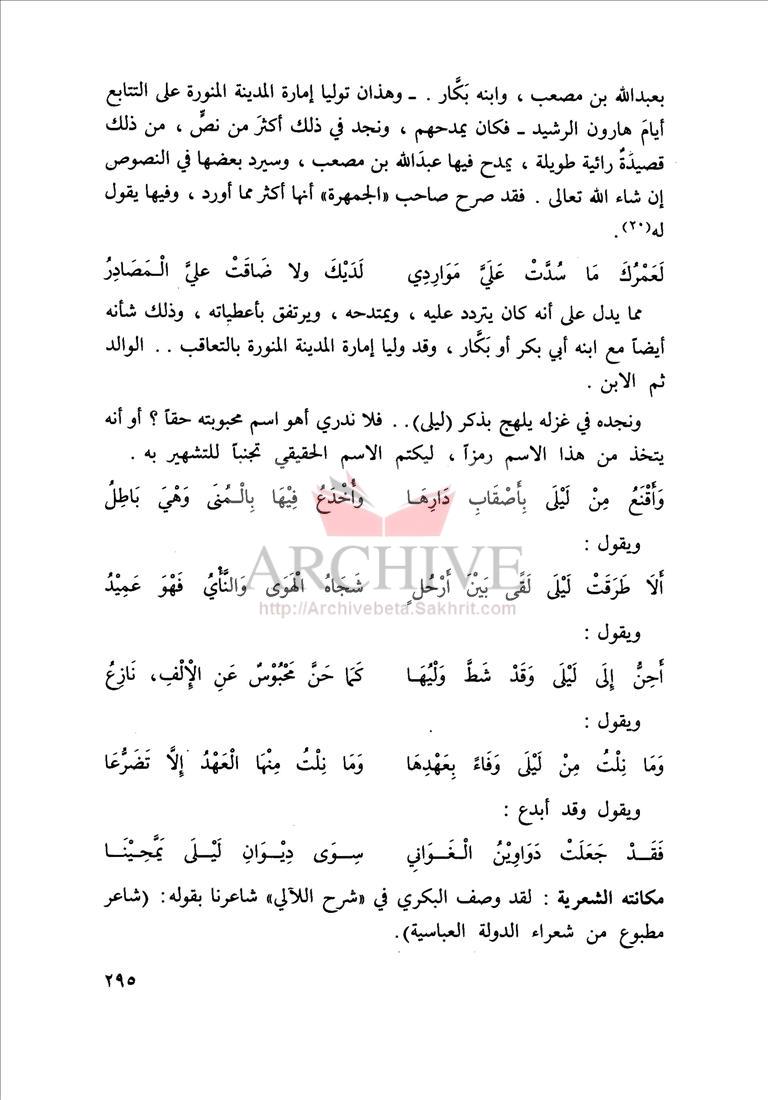 بعبدالله بن مصعب ، وابنه بَكَّار . ـ وهذان توليا إمارة المدينة المنورة على التتابع
أيامَ هارون الرشيد ـ فكان يمدحهم ، ونجد في ذلك أكثرَ من نصٍّ ، من ذلك
قصيدَةٌ رائية طويلة ، يمدح فيها عبدَالله بن مصعب ، وسيرد بعضها في النصوص
إن شاء الله تعالى . فقد صرح صاحب «الجمهرة» أنها أكثر مما أورد ، وفيها يقول
له(٢٠).
لَعَمْرُكَ مَا سُدَّتْ عَلَيَّ مَوَارِدِي لَدَيْكَ ولا ضَاقَتْ عليَّ الْـمَصَادِرُ
مما يدل على أنه كان يتردد عليه ، ويمتدحه ، ويرتفق بأعطياته ، وذلك شأنه
أيضاً مع ابنه أبي بكر أو بَكَّار ، وقد وليا إمارة المدينة المنورة بالتعاقب . . الوالد
ثم الابن .
ونجده في غزله يلهج بذكر (ليلى) . . فلا ندري أهو اسم محبوبته حقاً ؟ أو أنه
يتخذ من هذا الاسم رمزاً ، ليكتم الاسم الحقيقي تجنباً للتشهير به .
وَأَقْنَعُ مِنْ لَيْلَى بِأَصْقَابِ دَارِهَـا وَأُخْدَعُ فِيْهَا بِالْـمُنَى وَهْيَ بَاطِلُ
ويقول :
ARCHIVE
أَلَا طَرَقَتْ لَيْلَى لَقًى بَيْنَ أَرْحُلٍ شَجَاهُ الْهَوَى وَالنَّأْيُ فَهْوَ عَمِيْدُ
http://Archivebeta.Sakhrit.com
ويقول :
أَحِنُّ إِلَى لَيْلَى وَقَدْ شَطَّ وَلْيُهَـا كَمَا حَنَّ مَحْبُوْسٌ عَنِ الْإِلْفِ، نَازِعُ
ويقول :
وَمَا نِلْتُ مِنْ لَيْلَى وَفَاءً بِعَهْدِهَا وَمَا نِلْتُ مِنْهَا الْعَهْدُ إِلاَّ تَضَرُّعَا
ويقول وقد أبدع :
فَقَـدْ جَعَلَتْ دَوَاوِيْنُ الْـغَـوَانِي سِـوَى دِيْـوَانِ لَيْـلَى يَمَّحِـيْنَـا
مكانته الشعرية : لقد وصف البكري في «شرح اللآلي» شاعرنا بقوله: (شاعر
مطبوع من شعراء الدولة العباسية).
٢٩٥